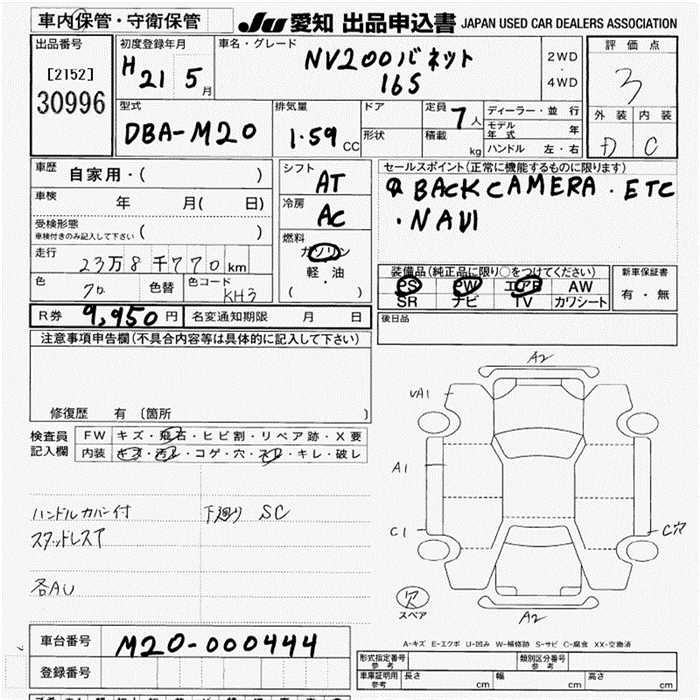 車内保管・守衛保管 JU 愛知 出品申込書 JAPAN USED CAR DEALERS ASSOCIATION
出品番号
[2152]
30996
初度登録年月
H 21 5 月
車名・グレード
NV200バネット
16S
2WD
・
4WD
評価点
3
外装 内装
D C
型式
DBA-M20
排気量
1.59 CC
ドア
形状
定員 7 人
積載 kg
ディーラー・並 行
モデル年式 年
ハンドル 左・右
車歴 自家用・( )
車検 年 月( 日)
受検形態
車検付きのみ記入して下さい ( )
走行 23万8千770km
色 クロ 色替 色コード KH3
シフト AT
冷房 AC
燃料
ガソリン
軽・油
( ・ )
セールスポイント(正常に機能するものに限ります)
BACK CAMERA・ETC
・NAVI
装備品(純正品に限り○をつけてください)
PS PW エアB AW
SR ナビ TV カワシート
新車保証書
有・無
R券 9,950円 名変通知期限 月 日
後日品
注意事項申告欄(不具合内容等は具体的に記入して下さい)
修復歴 有 〔箇所 〕
検査員記入欄
FW キズ・飛石・ヒビ割・リペア跡・X要
内装 キズ・汚レ・コゲ・穴・スレ・キレ・破レ
ハンドルカバー付 下廻り SC
スタッドレスT
各AU
A2
UA1
A1
C1
C穴
スペア
A2
A-キズ E-エクボ U-凹み W-補修跡 S-サビ C-腐食 XX-交換済
車台番号 M20-000444
登録番号
形式指定番号
参考
類別区分番号
参考
車庫証明用
参考
長さ cm 幅 cm 高さ cm